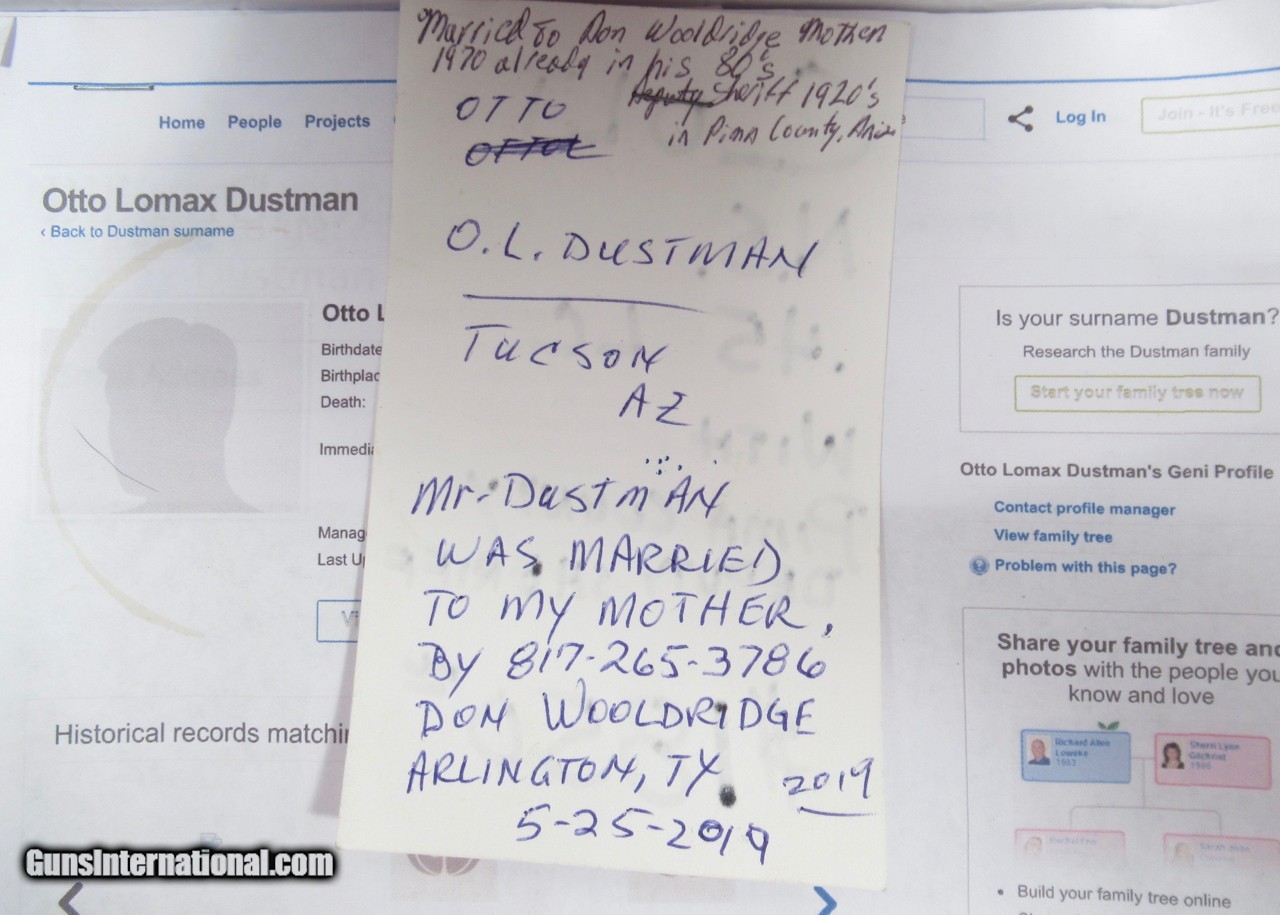 Married to Don Wooldridge Mother
1970 already in his 80's
Deputy Sheriff 1920's
in Pima County, Ariz
OTTO
O.L. DUSTMAN
TUCSON
AZ
Mr. DUSTMAN
WAS MARRIED
TO MY MOTHER,
By 817-265-3786
DON WOOLDRIDGE
ARLINGTON, TX
2019
5-25-2019
Home People Projects
Log In
Join - It's Free
Otto Lomax Dustman
‹ Back to Dustman surname
Otto L
Birthdate
Birthplac
Death:
Immedia
Manag
Last U
Vi
Historical records matchi
Is your surname Dustman?
Research the Dustman family
Start your family tree now
Otto Lomax Dustman's Geni Profile
Contact profile manager
View family tree
Problem with this page?
Share your family tree and
photos with the people you
know and love
Richard Allen
1983
• Build your family tree online
GunsInternational.com